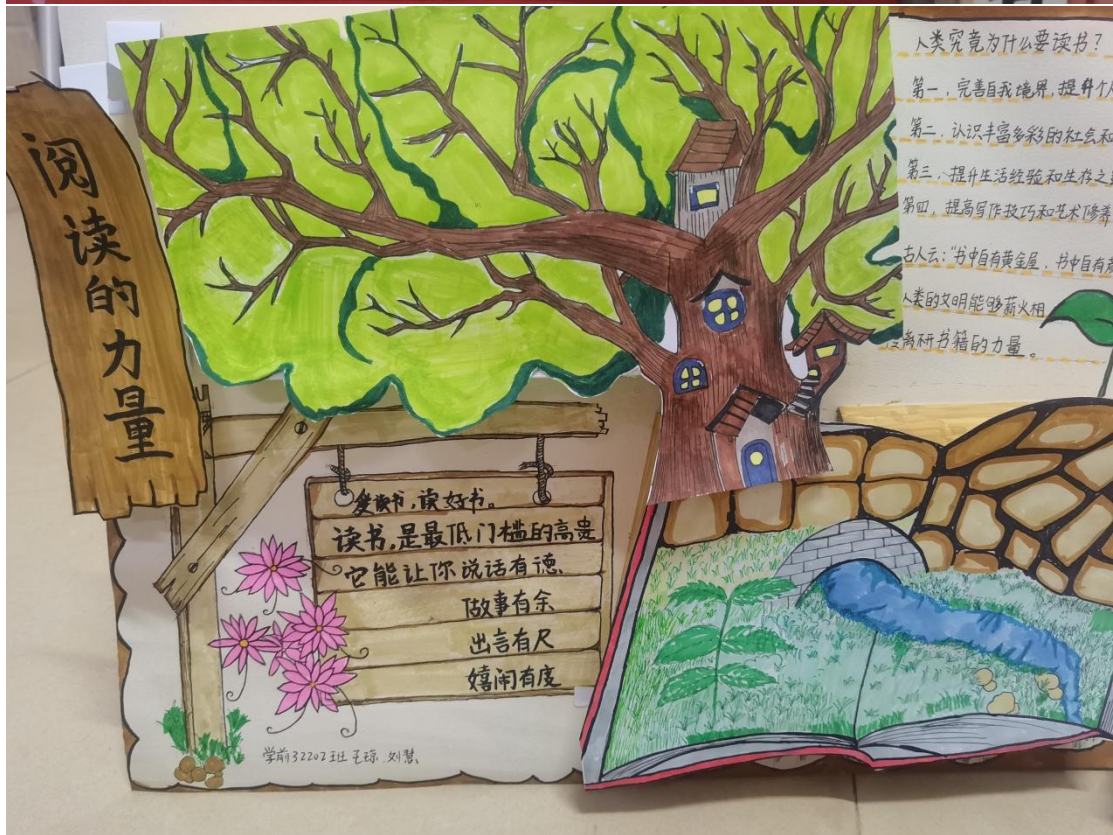 阅读的力量
人类究竟为什么要读书？
第一，完善自我境界，提升个人
第二，认识丰富多彩的社会和
第三，提升生活经验和生存之
第四，提高写作技巧和艺术修养
古人云：“书中自有黄金屋，书中自有
人类的文明能够薪火相
离不开书籍的力量。
爱读书，读好书。
读书，是最低门槛的高贵
它能让你说话有德
做事有余
出言有尺
嬉闹有度
学前32202班 毛琼 刘慧